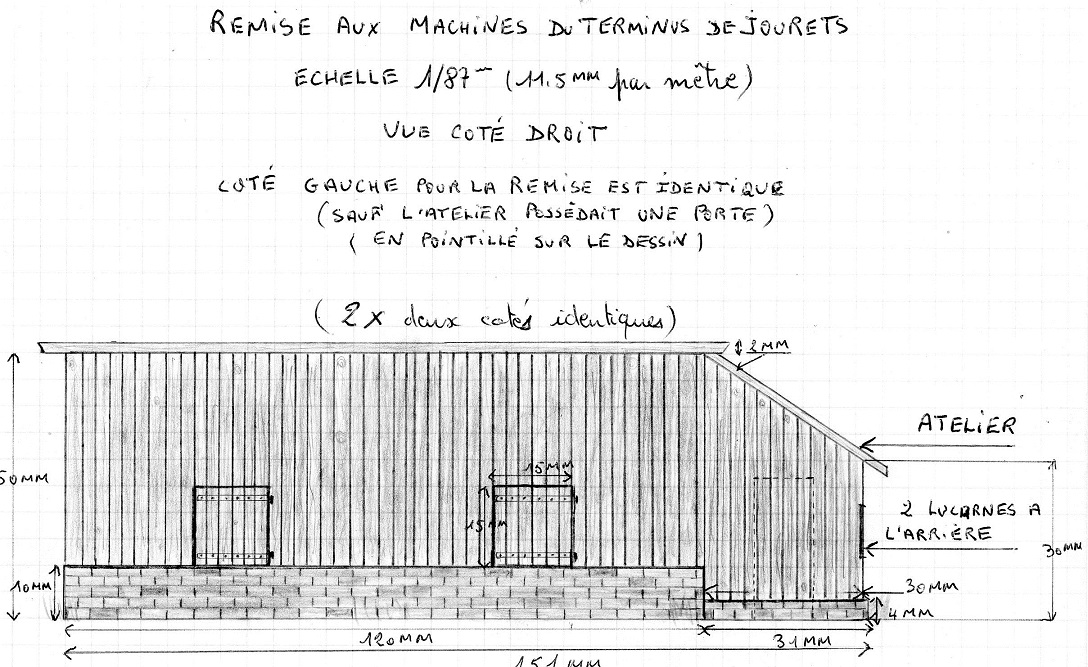 REMISE AUX MACHINES DU TERMINUS DE JOURETS
ECHELLE 1/87 (11.5MM par mêtre)
VUE COTÉ DROIT
COTÉ GAUCHE POUR LA REMISE EST IDENTIQUE
(SAUF L'ATELIER POSSÉDAIT UNE PORTE)
(EN POINTILLÉ SUR LE DESSIN)
(2 X deux cotés identiques)
2MM
ATELIER
15MM
50MM
15MM
2 LUCARNES A
L'ARRIÈRE
30MM
10MM
30MM
4MM
120MM
31MM
151MM